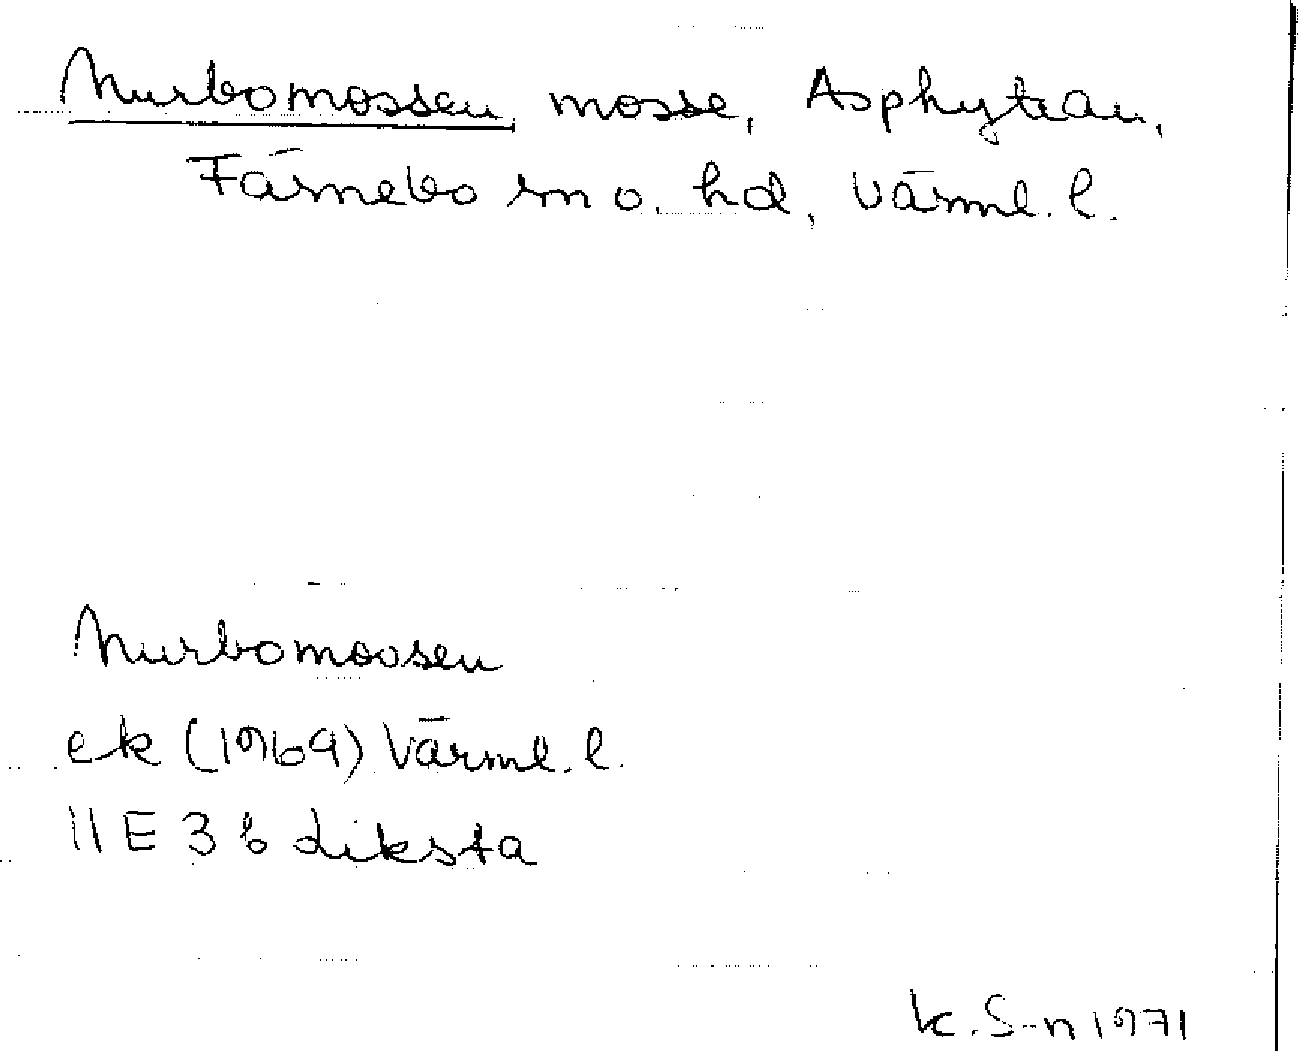 Nurbomossen mosse, Asphyttan,
Färnebo sn o. hd, Värml. l.
Nurbomossen
ek (1969) Värml. l.
11 E 3 b Liksta
K. S-n 1971